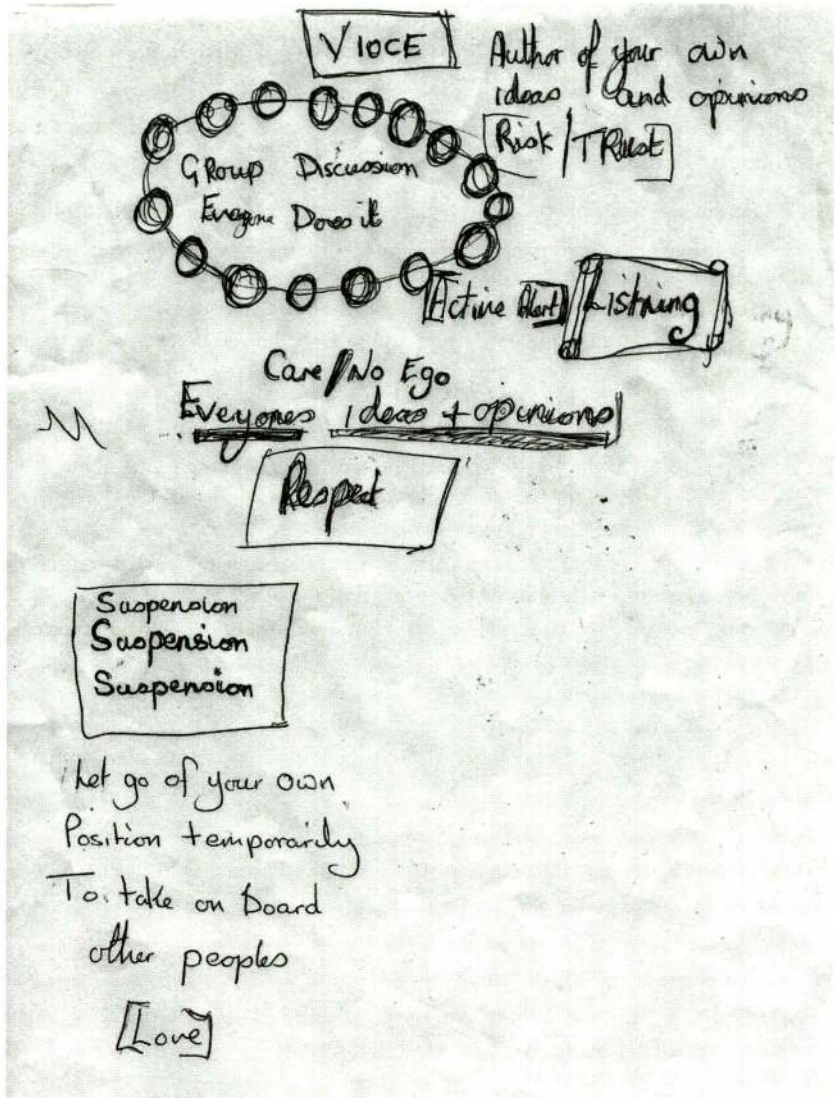 VIOCE
Author of your own
ideas and opinions
[Risk / TRust]
GRoup Discussion
Everyone Does it
[Active Alert] Listning
Care / No Ego
Everyones ideas + opinions
Respect
Suspension
Suspension
Suspension
Let go of your own
Position temporarily
To take on board
other peoples
[Love]